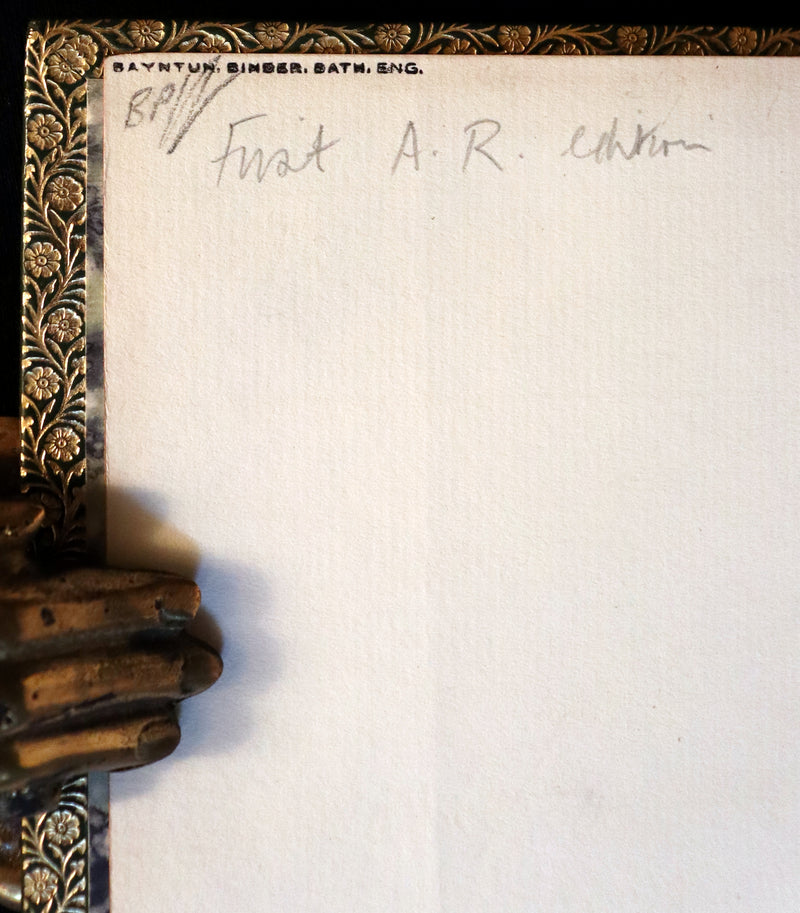 BAYNTUN. BINDER. BATH. ENG.
First A. R. edition